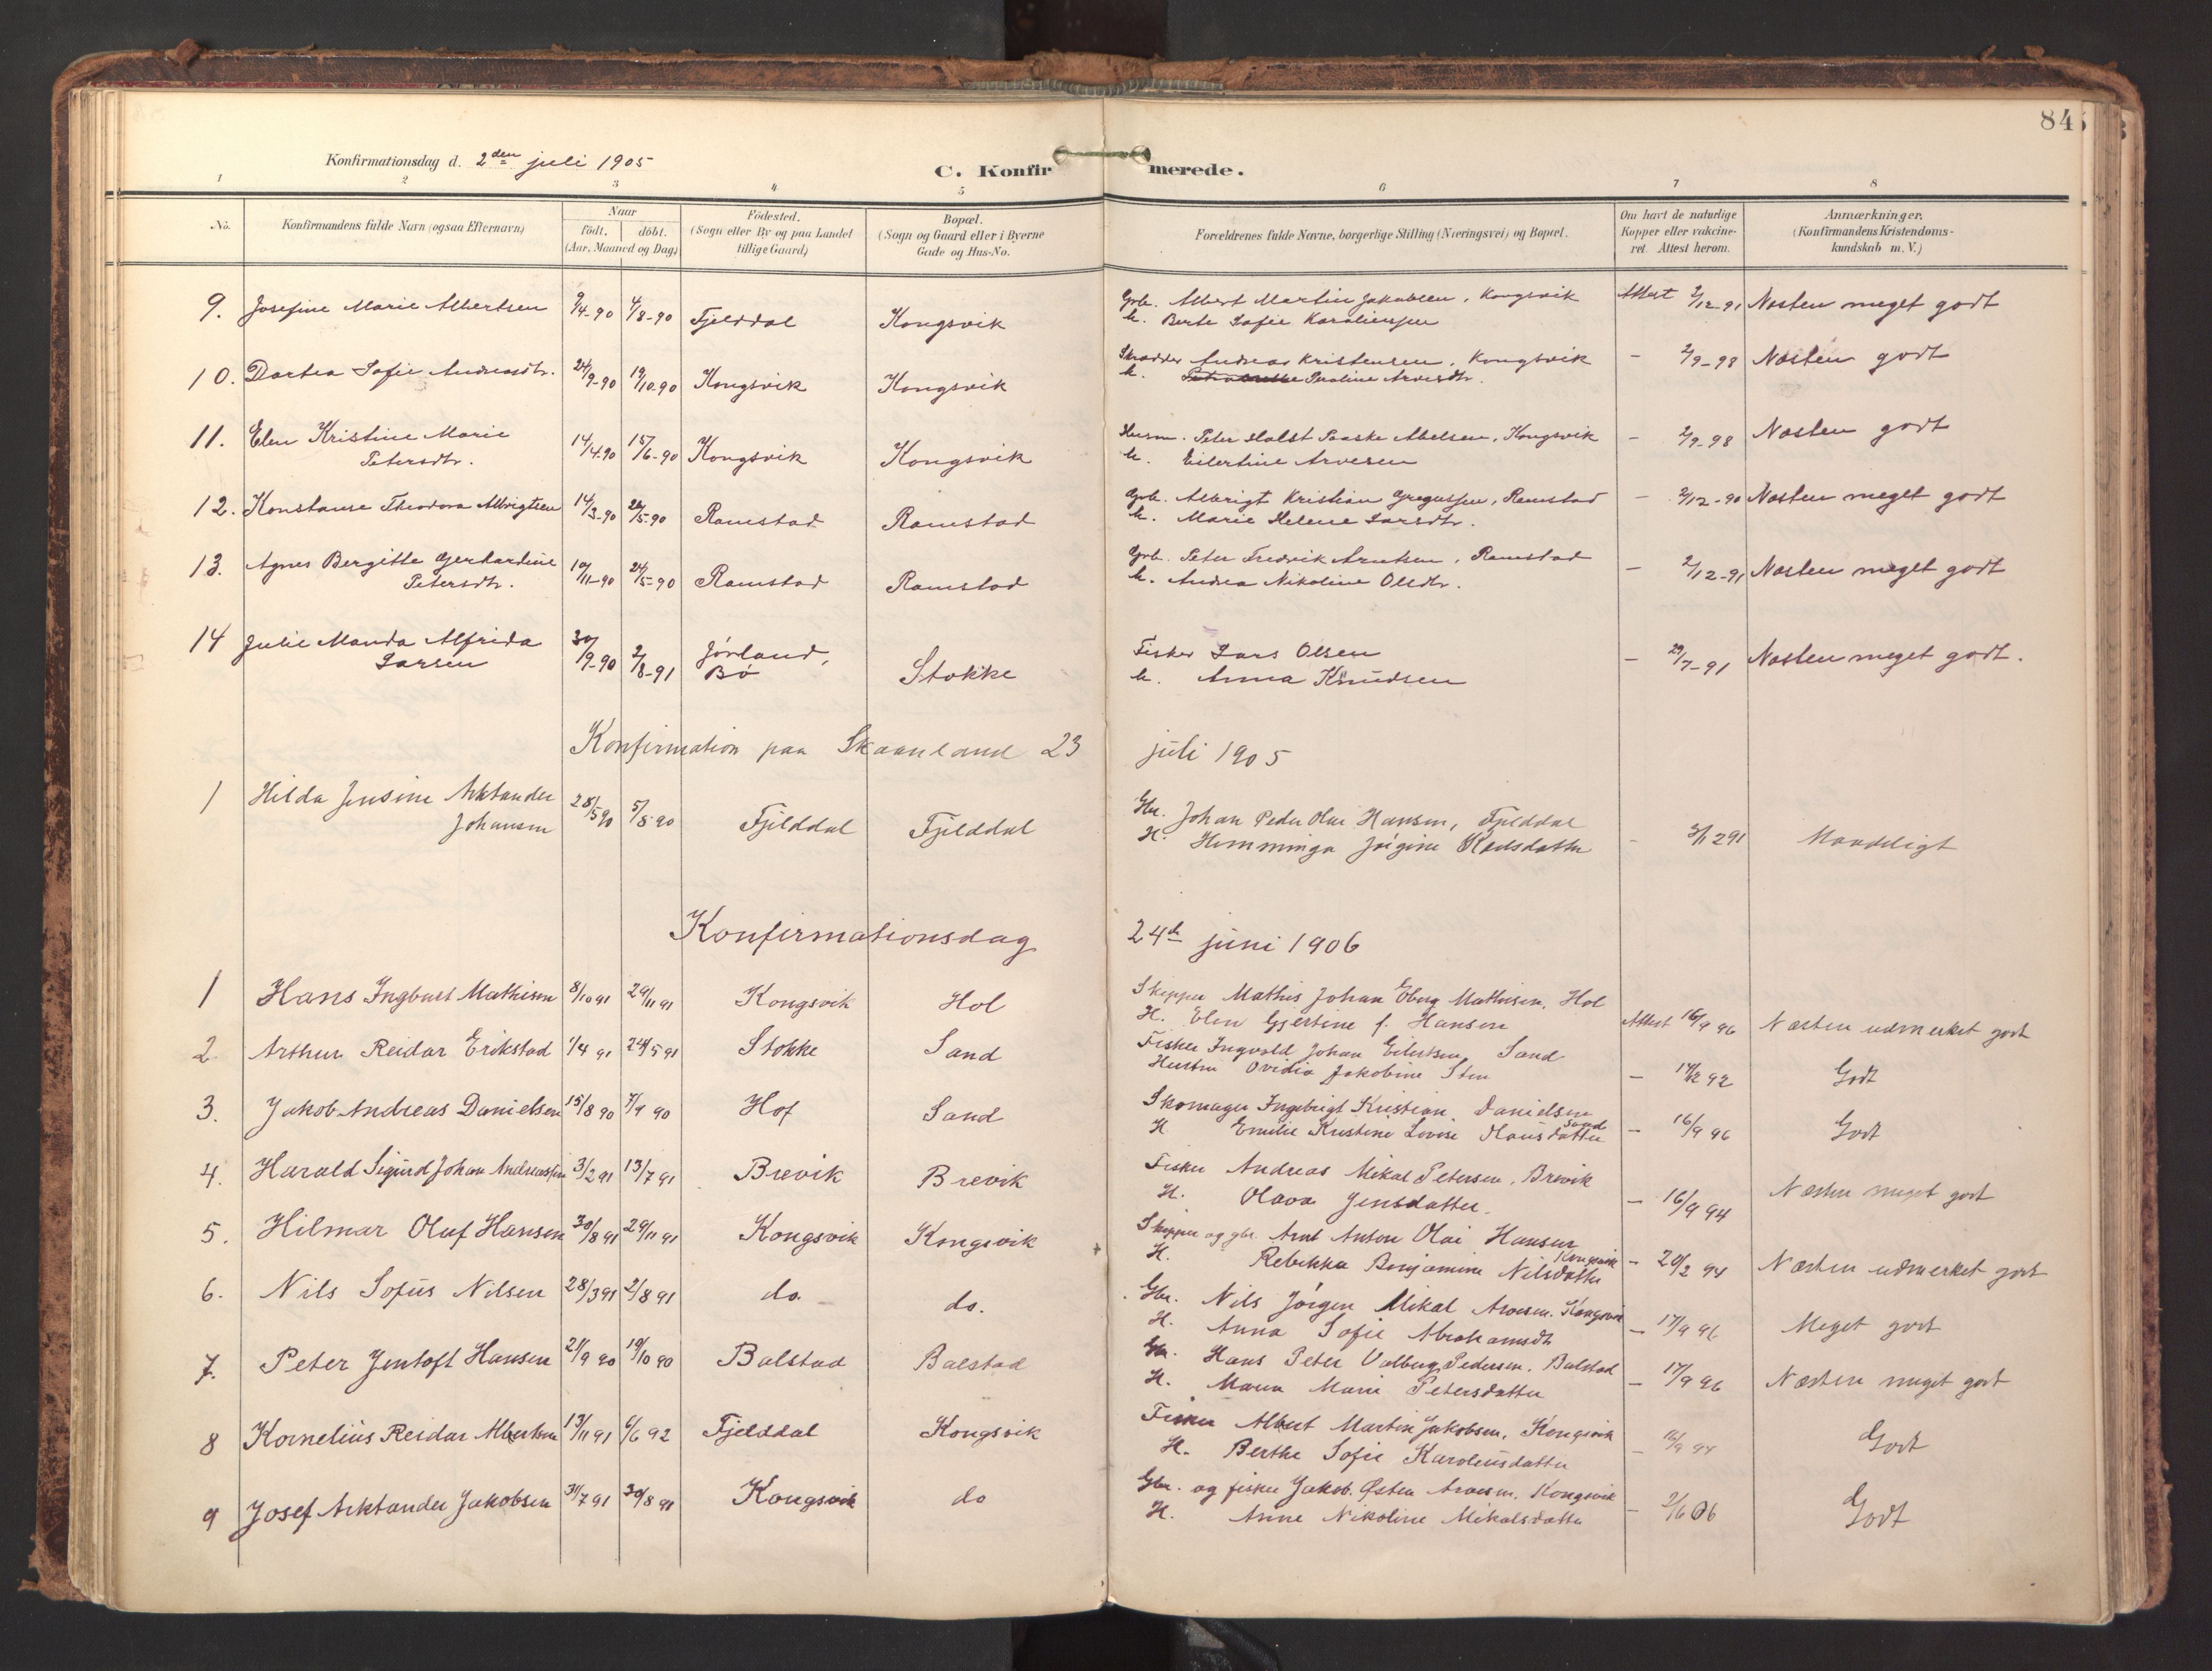 84
Konfirmationsdag d. 2den juli 1905
C. Konfirmerede.
1 2 3 4 5 6 7 8
No.
Konfirmandens fulde Navn (ogsaa Efternavn)
Naar
födt. döbt.
(Aar, Maaned og Dag)
Födested.
(Sogn eller By og paa Landet
tillige Gaard)
Bopæl.
(Sogn og Gaard eller i Byerne
Gade og Hus-No.
Forældrenes fulde Navne, borgerlige Stilling (Næringsvei) og Bopæl.
Om havt de naturlige
Kopper eller vakcine-
ret. Attest herom.
Anmærkninger.
(Konfirmandens Kristendoms-
kundskab m. V.)
9. Josefine Marie Albertsen 9/4-90 4/8-90 Fjelddal Kongsvik Grb. Albert Martin Jakobsen, Kongsvik Attest 2/12-91 Næsten meget godt
h. Berte Sofie Karoliussen
10. Dortea Sofie Andreasdtr. 24/9-90 19/10-90 Kongsvik Kongsvik Skrædder Andreas Kristensen, Kongsvik - 2/9-98 Næsten godt
h. Paoline Arvesdtr.
11. Elen Kristine Marie 14/4-90 15/6-90 Kongsvik Kongsvik Husm. Peter Holst Paaske Abelsen, Kongsvik - 2/9-98 Næsten godt
Petersdtr. h. Eilertine Arvesen
12. Konstanse Theodora Albrigtsen 14/3-90 26/5-90 Ramstad Ramstad Grb. Albrigt Kristian Gregussen, Ramstad - 2/12-90 Næsten meget godt
h. Marie Helene Larsdtr.
13. Agnes Bergitte Gerhardine 10/11-90 24/5-90 Ramstad Ramstad Grb. Peter Fredrik Arntsen, Ramstad - 2/12-91 Næsten meget godt
Petersdtr. h. Andrea Nikoline Olsdtr.
14 Julie Manda Alfrida 30/9-90 2/8-91 Jörland, Stokke Fisker Lars Olsen - 29/7-91 Næsten meget godt.
Larsen Bö h. Anna Knudsen
Konfirmation paa Skaanland 23 juli 1905
1 Hilda Jensine Arktander 28/5 90 5/8 90 Fjelddal Fjelddal Gbr. Johan Peder Olai Hansen, Fjelddal - 3/12 91 Maadeligt
Johansen H. Hemminga Jörgine Karlsdatter
Konfirmationsdag 24de juni 1906
1 Hans Ingbart Mathisen 8/10 91 29/11 91 Kongsvik Hol Skipper Mathis Johan Eberg Mathisen, Hol Attest 16/9 96 Næsten udmerket godt
H. Elen Gjertine f. Hansen
2 Arthur Reidar Erikstad 1/4 91 24/5 91 Stokke Sand Fisker Ingvald Johan Eilertsen, Sand - 17/2 92 Godt
Hustru Ovidia Jakobine Sten
3. Jakob Andreas Danielsen 15/8 90 7/9 90 Hof Sand Skomager Ingebrigt Kristian Danielsen Sand - 16/9 96 Godt
H Emilie Kristine Lovise Hansdatter
4. Harald Sigurd Johan Andreassen 3/2 91 13/7 91 Brevik Brevik Fisker Andreas Mikal Petersen, Brevik - 16/9 94 Næsten meget godt
H. Olava Jensdatter
5. Hilmar Oluf Hansen 30/8 91 29/11 91 Kongsvik Kongsvik Skipper og gbr. Arnt Anton Olai Hansen Kongsvik - 20/2 94 Næsten udmerket godt
H. Rebekka Benjamine Nilsdatter
6. Nils Sofus Nilsen 28/3 91 2/8 91 do. do. Gbr. Nils Jörgen Mikal Arvesen, Kongsvik - 17/9 96 Meget godt
H. Anna Sofie Abrahamsdt
7. Peter Jentoft Hansen 21/9 90 19/10 90 Balstad Balstad Gbr. Hans Peter Valberg Pedersen, Balstad - 17/9 96 Næsten meget godt
H. Maren Marie Petersdatter
8 Kornelius Reidar Albertsen 13/11 91 6/6 92 Fjelddal Kongsvik Fisker Albert Martin Jakobsen, Kongsvik - 16/9 94 Godt
H. Berthe Sofie Karoliusdatter
9 Josef Arktander Jakobsen 31/7 91 30/8 91 Kongsvik do Gbr. og fisker Jakob Østen Arvesen, Kongsvik - 2/6 06 Godt
H. Anne Nikoline Mikalsdatter